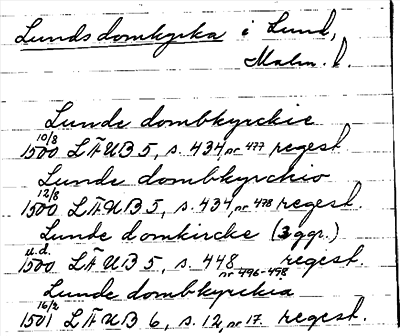 Lunds domkyrka i Lund,
Malm. l.
Lunde dombkyrckie
10/8
1500 LÄUB 5, s. 434, nr 477 regest.
Lunde dombkyrchio
12/8
1500 LÄUB 5, s. 434, nr 478 regest.
Lunde domkircke (3 ggr.)
u.d.
1500 LÄUB 5, s. 448 regest.
nr 496-498
Lunde dombkyrckia
16/2
1501 LÄUB 6, s. 12, nr 17. regest.